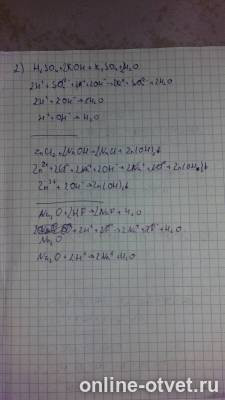 2) H₂SO₄ + 2KOH → K₂SO₄ + H₂O
2H⁺ + SO₄²⁻ + 2K⁺ + 2OH⁻ → 2K⁺ + SO₄²⁻ + 2H₂O
2H⁺ + 2OH⁻ → 2H₂O
H⁺ + OH⁻ → H₂O
ZnCl₂ + 2NaOH → 2NaCl + Zn(OH)₂↓
Zn²⁺ + 2Cl⁻ + 2Na⁺ + 2OH⁻ → 2Na⁺ + 2Cl⁻ + Zn(OH)₂↓
Zn²⁺ + 2OH⁻ → Zn(OH)₂↓
Na₂O + 2HF → 2NaF + H₂O
+ 2H⁺ + 2F⁻ → 2Na⁺ + 2F⁻ + H₂O
Na₂O
Na₂O + 2H⁺ → 2Na⁺ + H₂O
online-otvet.ru